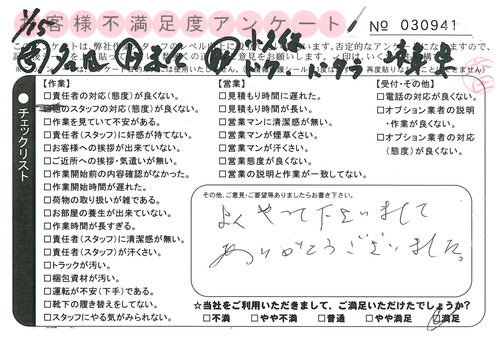 1/15
お客様不満足度アンケート
No 030941
チェックリスト
【作業】
□責任者の対応(態度)が良くない。
□他のスタッフの対応(態度)が良くない。
□作業を見ていて不安がある。
□責任者(スタッフ)に好感が持てない。
□お客様への挨拶が出来ていない。
□ご近所への挨拶・気遣いが無い。
□作業開始前の内容確認がなかった。
□作業開始時間が遅れた。
□荷物の取り扱いが雑である。
□お部屋の養生が出来ていない。
□作業時間が長すぎる。
□責任者(スタッフ)に清潔感が無い。
□責任者(スタッフ)が汗くさい。
□トラックが汚い。
□梱包資材が汚い。
□運転が不安(下手)である。
□靴下の履き替えをしてない。
□スタッフにやる気がみられない。
【営業】
□見積もり時間に遅れた。
□見積もり時間が長い。
□営業マンに清潔感が無い。
□営業マンが煙草くさい。
□営業マンが汗くさい。
□営業マンの態度が良くない。
□営業の説明と作業が一致してない。
【受付・その他】
□電話の対応が良くない。
□オプション業者の説明・作業が良くない。
□オプション業者の対応(態度)が良くない。
その他、ご意見・ご要望等ありましたらお書き下さい。
よくやって下さいまして
ありがとうございました。
☆当社をご利用いただきまして、ご満足いただけたでしょうか?
□不満 □やや不満 □普通 □やや満足 □満足